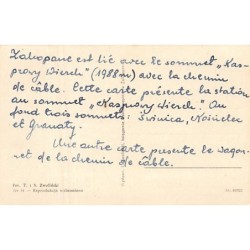 Zakopane est lié avec le sommet „Kas-
prowy Wierch" (1988m) avec la chemin
de câble. Cette carte présente la station
au sommet „Kasprowy Wierch". Au
fond trois sommets: Świnica, Kościelec
et Granaty.
Une autre carte presente le wagon-
net de la chemin de câble.
Fot. T. i S. Zwoliński
Reprodukcja wzbroniona